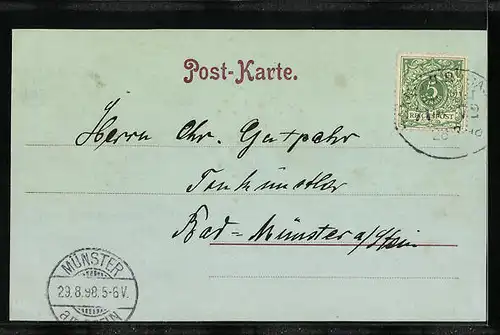 Post-Karte.
5
REICHSPOST
Herrn Chr. Gutpahr
Tonkünstler
Bad-Münster a/Stein
MÜNSTER
29.8.98.5-6V.
a. STEIN